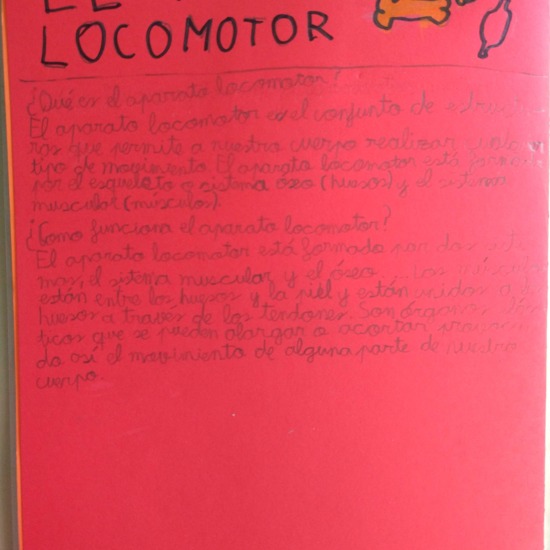 EL
LOCOMOTOR
¿Qué es el aparato locomotor?
El aparato locomotor es el conjunto de estructu
ras que permite a nuestro cuerpo realizar cualquier
tipo de movimiento. El aparato locomotor está forma
por el esqueleto o sistema óseo (huesos) y el sistema
muscular (músculos).
¿Como funciona el aparato locomotor?
El aparato locomotor está formado por dos siste
mas, el sistema muscular y el óseo... Los músculos
están entre los huesos y la piel y están unidos a
huesos a traves de los tendones. Son órganos
ticos que se pueden alargar o acortar
do así el movimiento de alguna parte de nuestro
cuerpo.